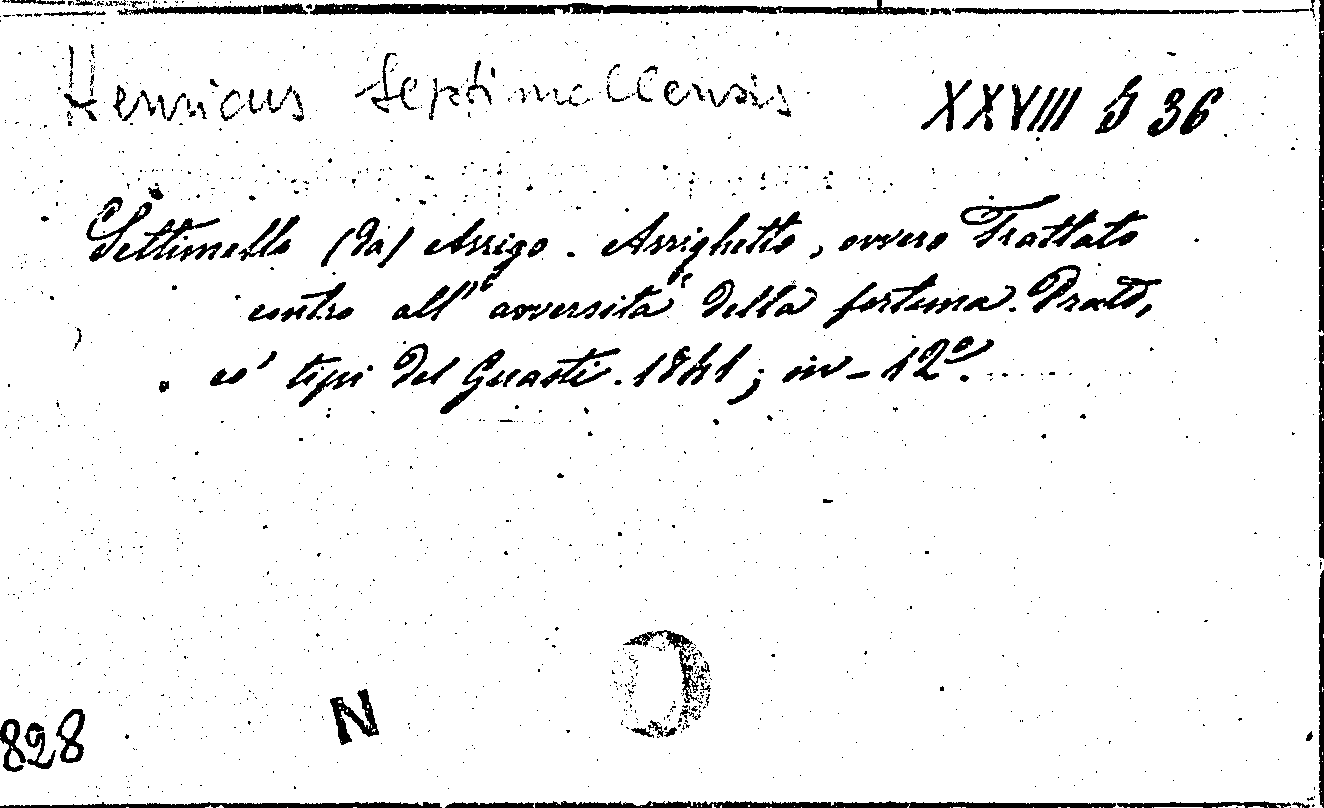 Henricus Septimellensis
XXVIII G 36
Settimello (da) Arrigo. Arrighetto, ovvero Trattato
contro all' avversità della fortuna. Prato,
co' tipi del Guasti. 1841; in-12º.
828
N